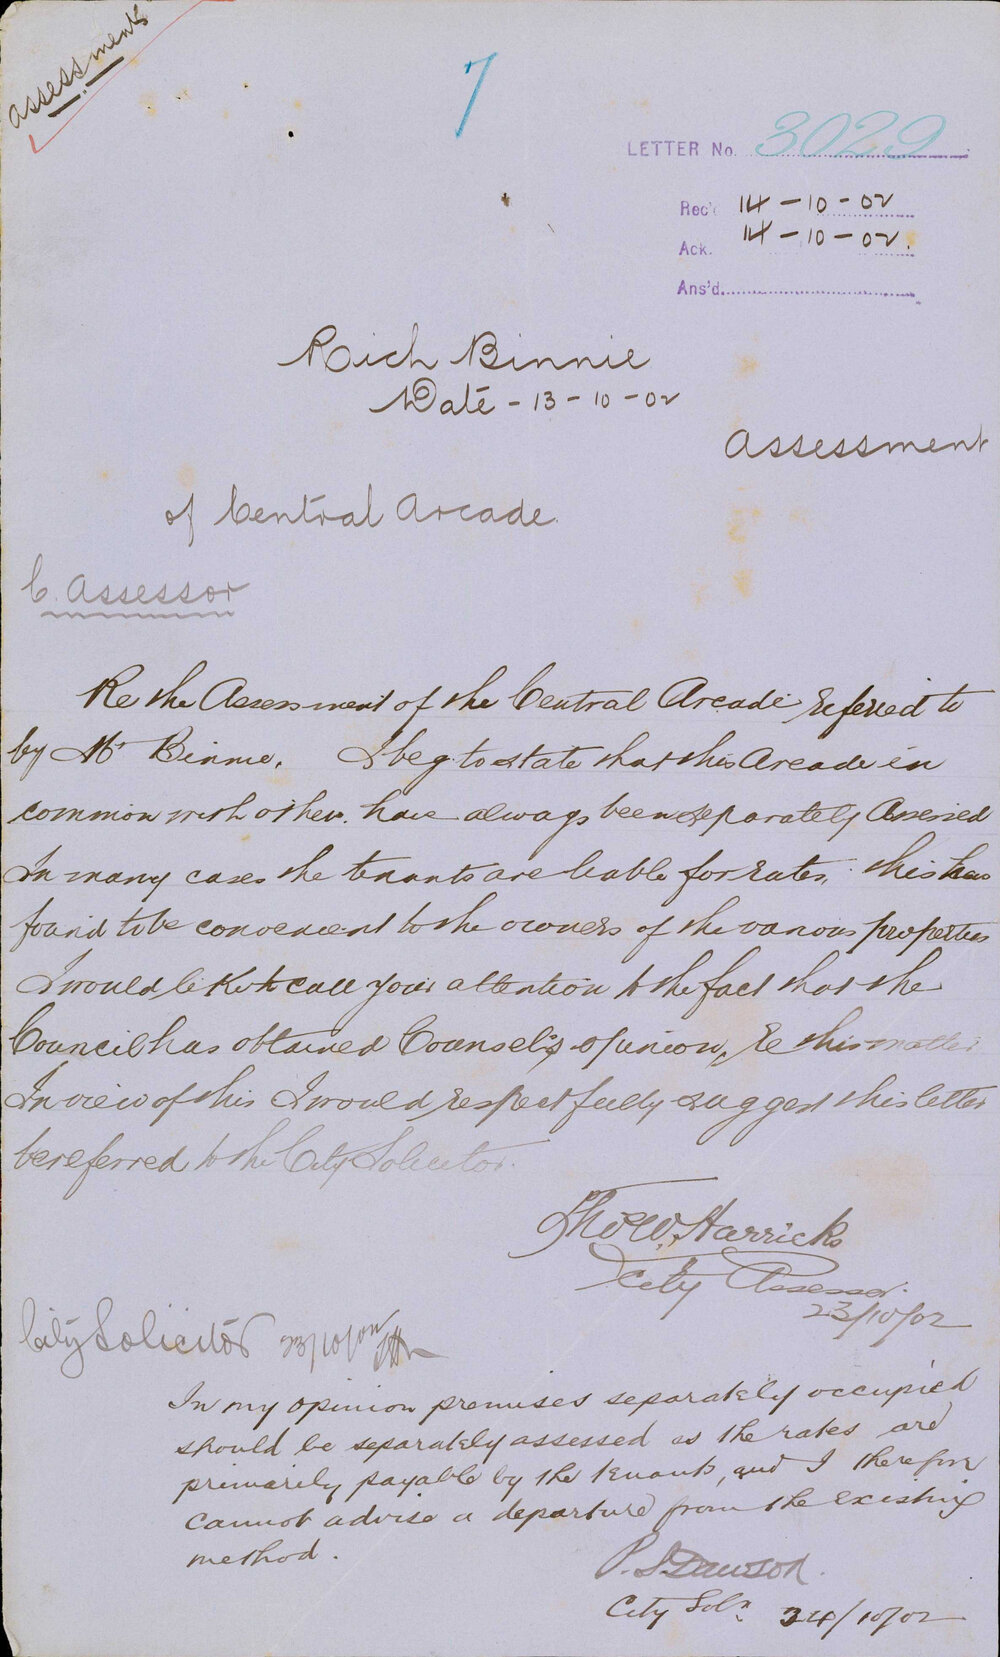 Assessments
7
LETTER No. 3029
Rec'd 14-10-02
Ack. 14-10-02.
Ans'd.
Rich Binnie
Date - 13-10-02
Assessment
of Central Arcade.
C. Assessor
Re the Assessment of the Central Arcade referred to
by Mr Binnie. I beg to state that this Arcade in
common with others have always been separately Assessed
In many cases the tenants are liable for rates, this has
found to be convenient to the owners of the various properties
I would like to call your attention to the fact that the
Council has obtained Counsel's opinion, re this matter
In view of this I would respectfully suggest this letter
be referred to the City Solicitor.
Thos W. Harricks
City Assessor.
23/10/02
City Solicitor 23/10/02
In my opinion premises separately occupied
should be separately assessed as the rates are
primarily payable by the tenants, and I therefore
cannot advise a departure from the existing
method.
P. S. Dawson.
City Solr. 24/10/02